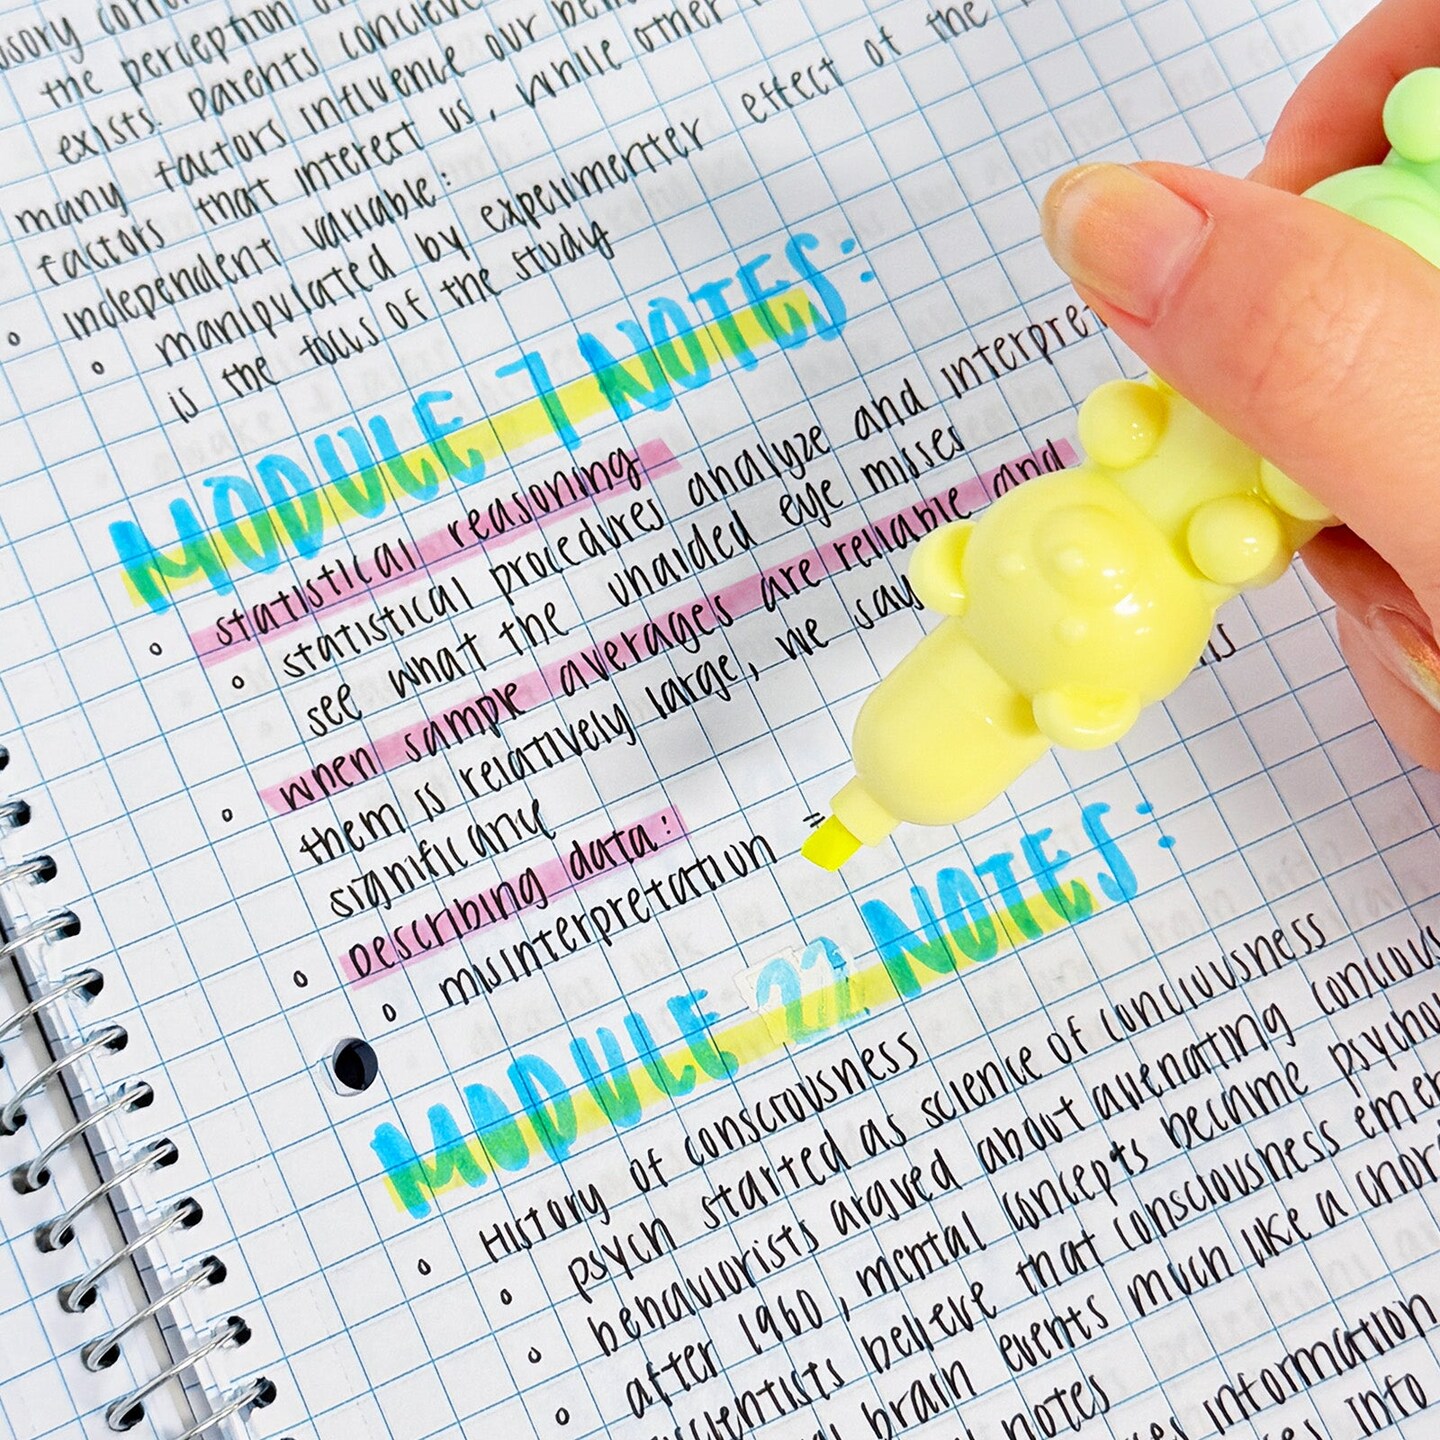 the perception
exists. parents concieve
many factors influence our
factors that interest us, while other
independent variable:
manipulated by experimenter effect of the
is the focus of the study
MODULE 7 NOTES:
statistical reasoning
statistical procedures analyze and interpret
see what the unaided eye misses
when sample averages are reliable and
them is relatively large, we say
significance
Describing data:
misinterpretation =
MODULE 22 NOTES:
History of consciousness
psych started as science of conciousness
behaviorists argued about alienating
after 1960, mental concepts became
believe that consciousness
brain events much like a
notes
information
into